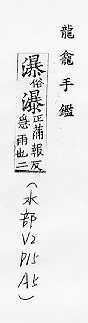 龍龕手鑑
瀑俗瀑正蒲報反急雨也二
(水部V2P15A5)